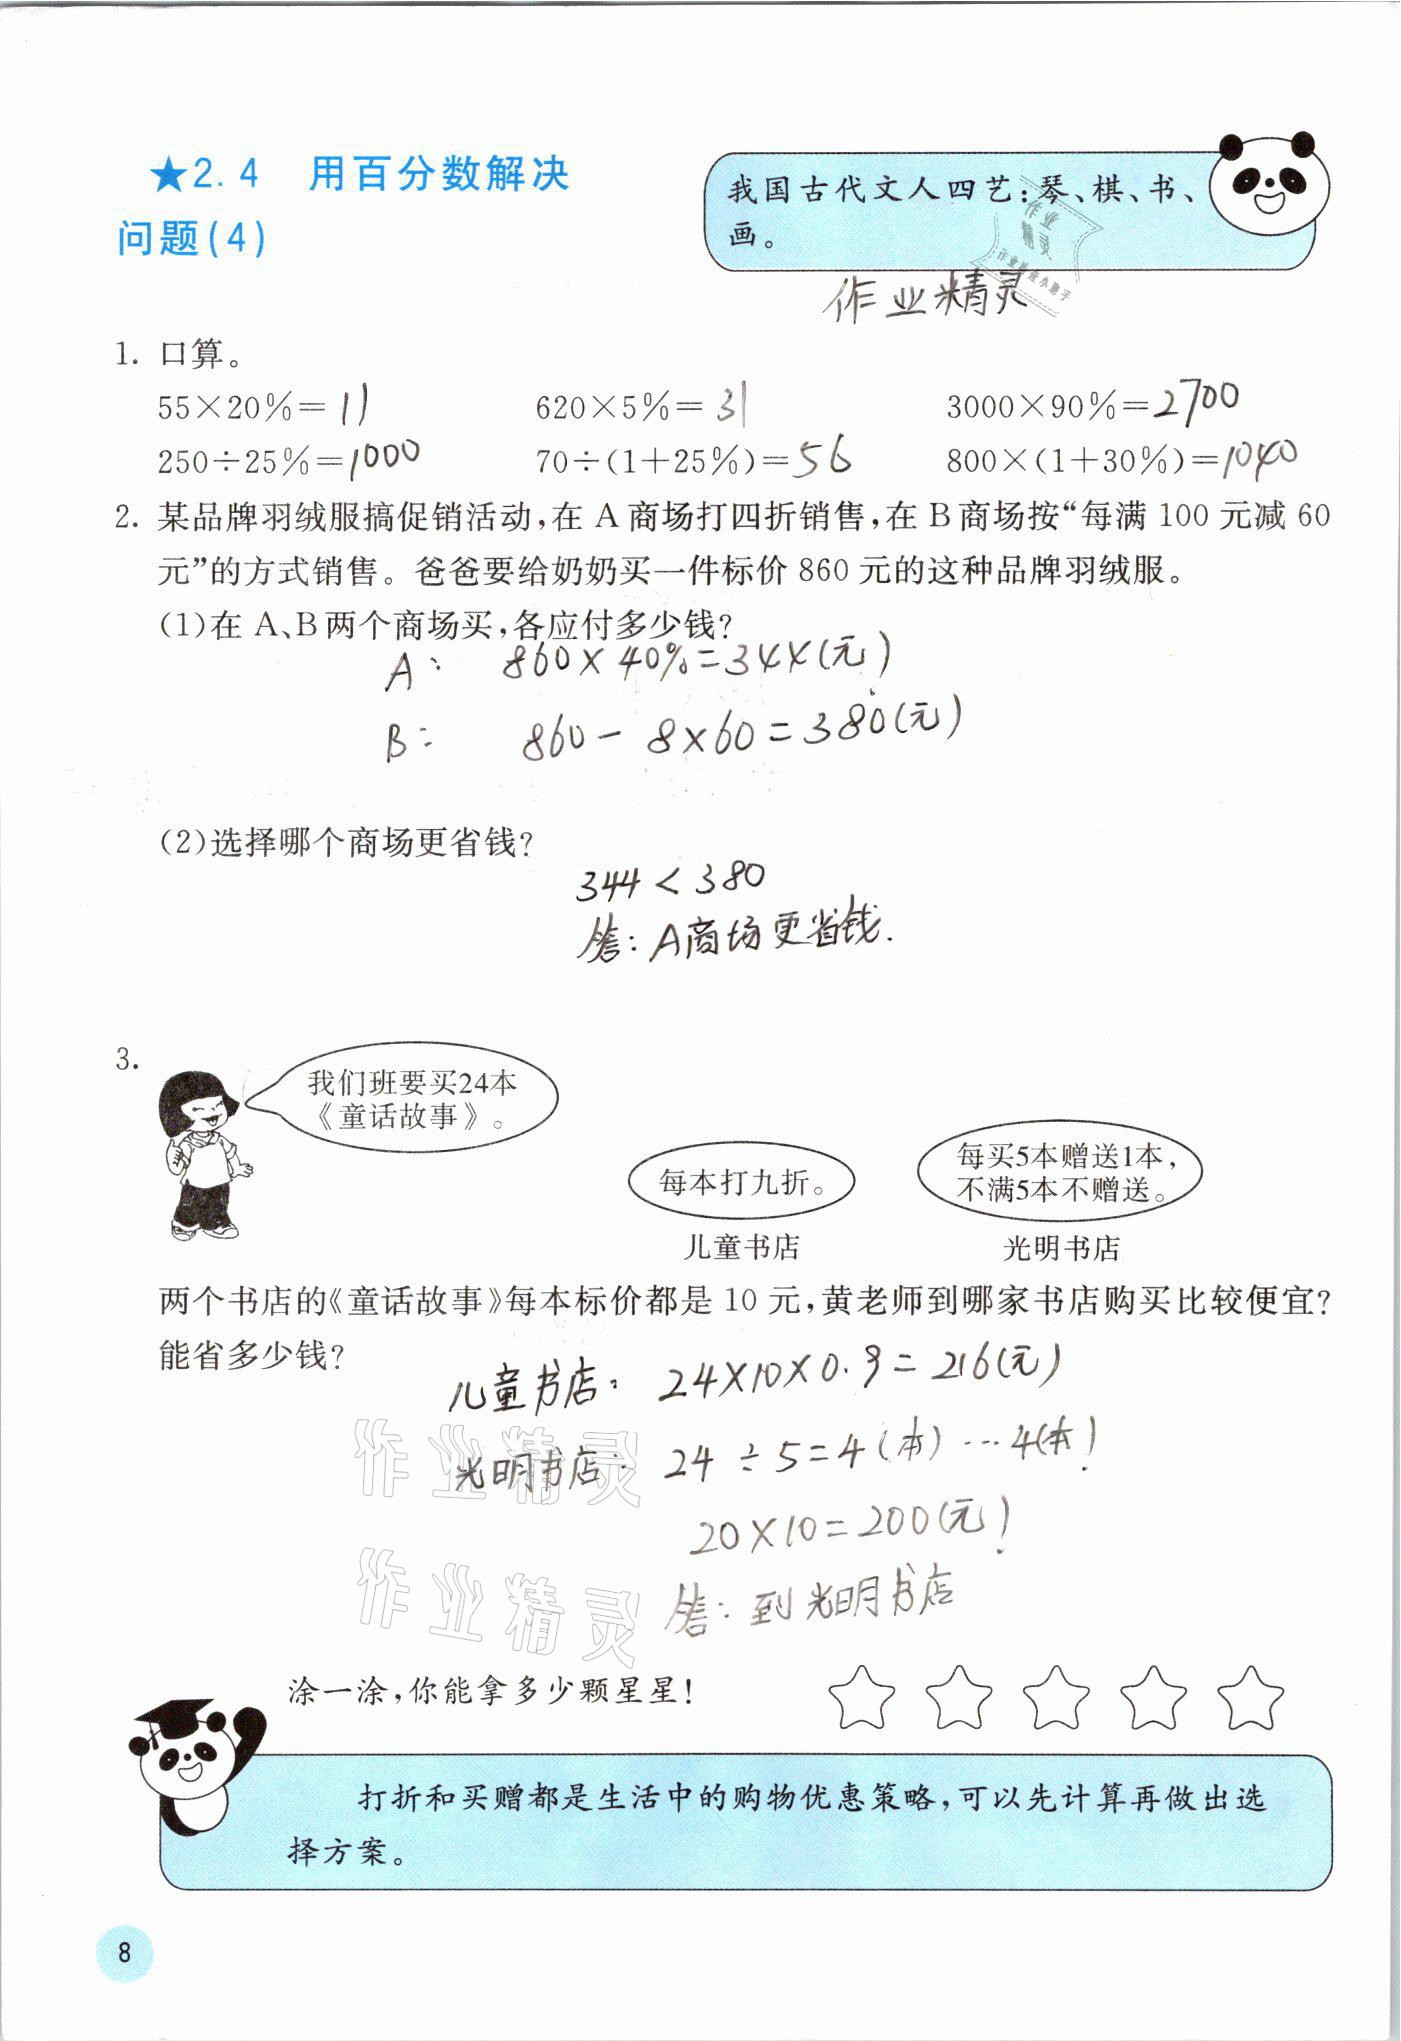 ★2.4 用百分数解决
问题(4)
我国古代文人四艺:琴、棋、书、
画。
作业精灵
1. 口算。
55×20%=11 620×5%=31 3000×90%=2700
250÷25%=1000 70÷(1+25%)=56 800×(1+30%)=1040
2. 某品牌羽绒服搞促销活动,在 A 商场打四折销售,在 B 商场按“每满 100 元减 60
元”的方式销售。爸爸要给奶奶买一件标价 860 元的这种品牌羽绒服。
(1)在 A、B 两个商场买,各应付多少钱?
A: 860×40%=344(元)
B: 860-8×60=380(元)
(2)选择哪个商场更省钱?
344<380
答:A商场更省钱.
3.
我们班要买24本
《童话故事》。
每本打九折。
每买5本赠送1本,
不满5本不赠送。
儿童书店 光明书店
两个书店的《童话故事》每本标价都是 10 元,黄老师到哪家书店购买比较便宜?
能省多少钱?
儿童书店: 24×10×0.9=216(元)
光明书店: 24÷5=4(本)…4(本)
20×10=200(元)
答:到光明书店
作业精灵
作业精灵
涂一涂,你能拿多少颗星星!
打折和买赠都是生活中的购物优惠策略,可以先计算再做出选
择方案。
8